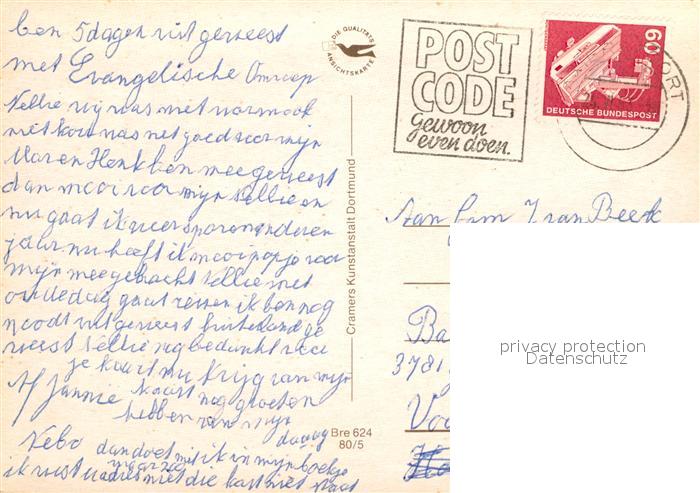 ben 5 dagen uit geweest
met Evangelische Omroep
Nellie wij was met
niet kou was net goed voor mijn
Mar en Henk ben mee geweest
dan mooi voor mijn Nellie en
nu gaat ik weer sparen anderen
jaar nu heeft ik mooi popje voor
mijn meegebracht Nellie met
oude dag gaat reisen ik ben nog
nooit uit geweest buiteland ge
weest Nellie nog bedankt voor
je kaart nu krijg van mijn
Af Jannie kaart nog groeten
hebben van mijn
daaag
Nebo dan doet met ik in mijn boekje
ik wist niet die kaart niet staat
DIE QUALITÄTS ANSICHTSKARTE
Cramers Kunstanstalt Dortmund
Bre 624
80/5
POST
CODE
gewoon
even doen.
60
DEUTSCHE BUNDESPOST
ORT
Aan van Beek
Ba
3781
Voo
privacy protection
Datenschutz